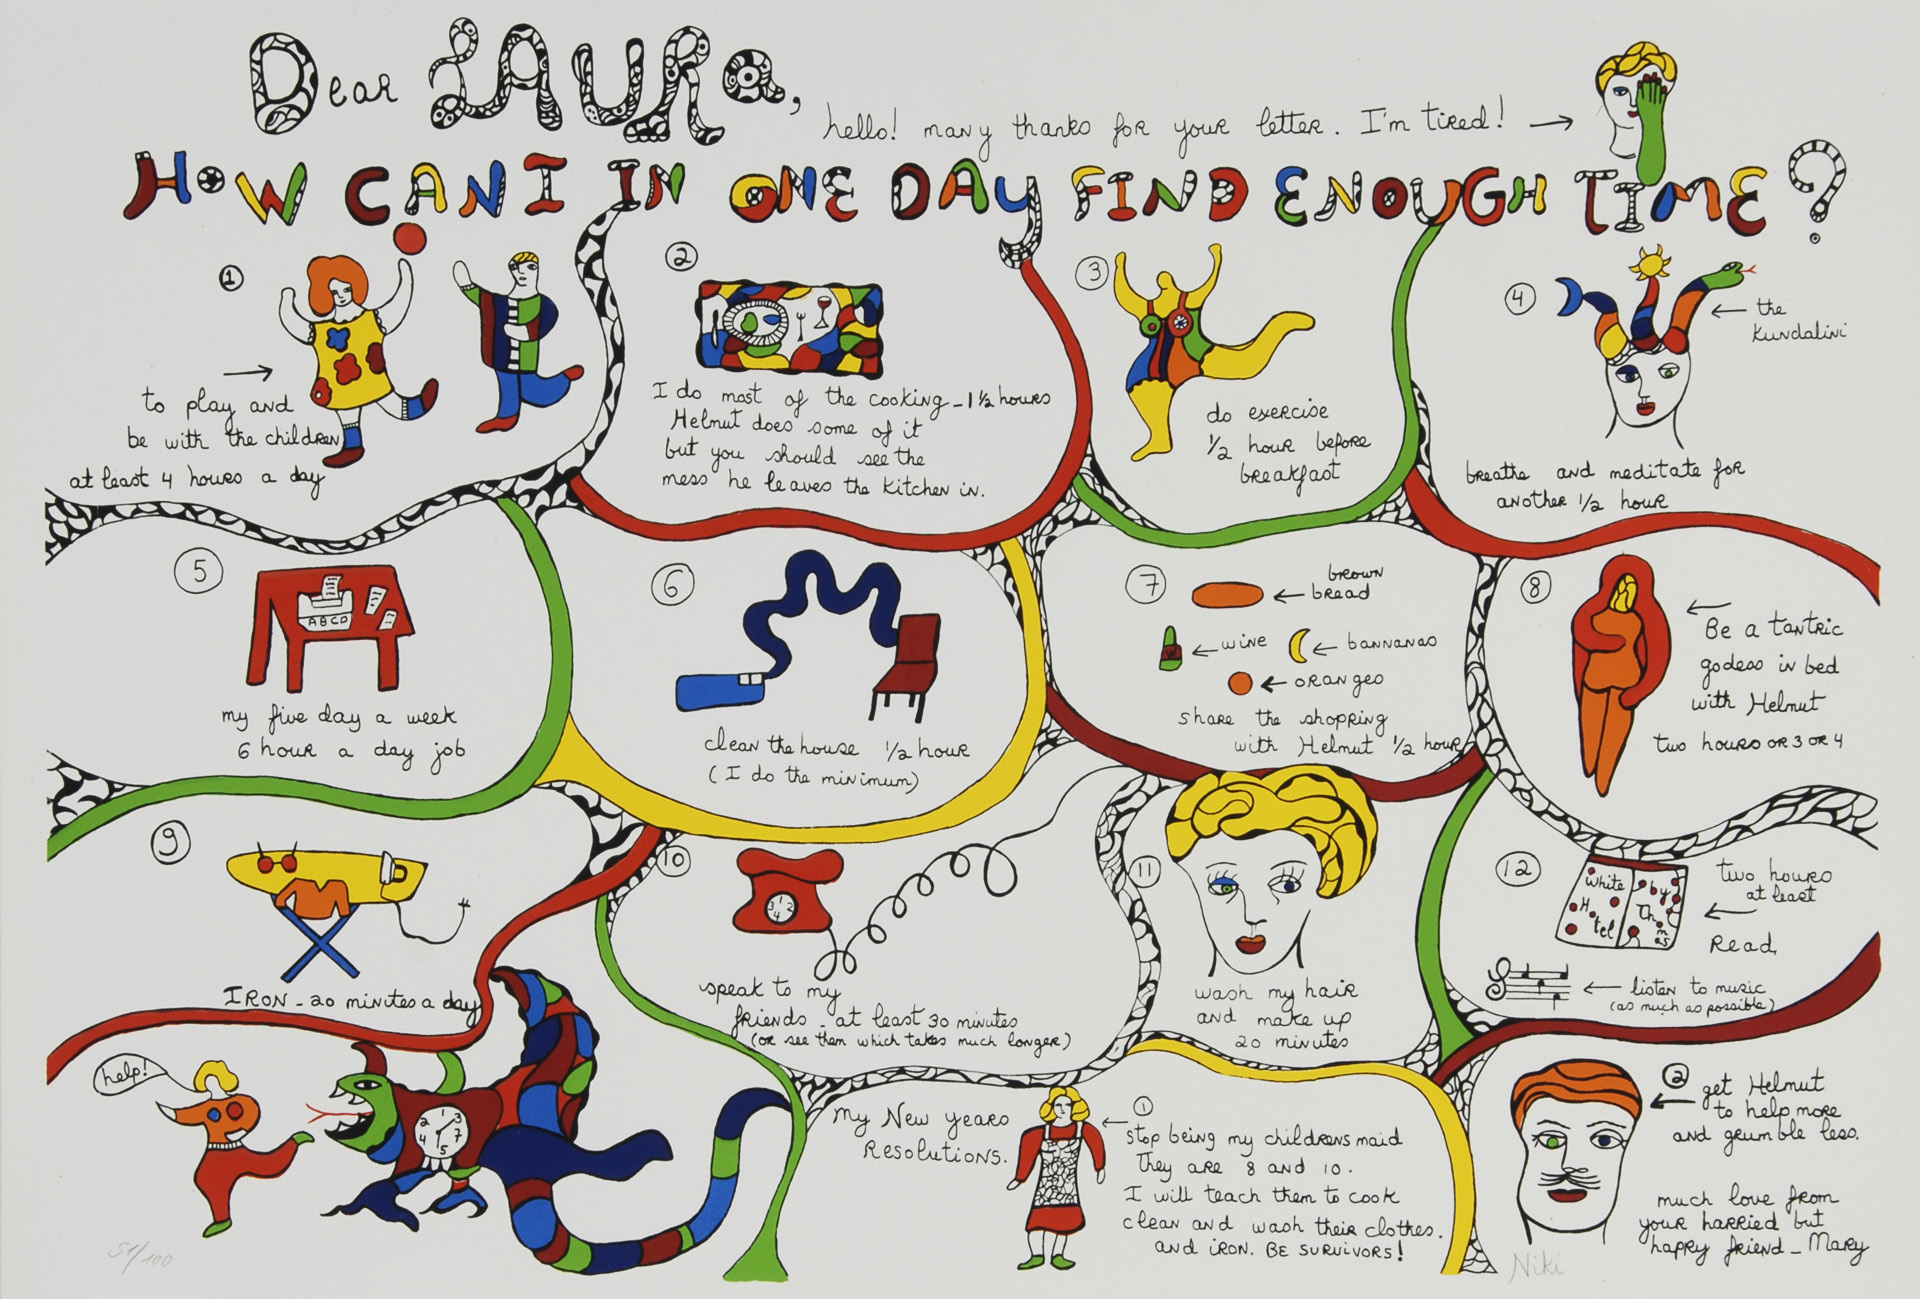 Dear LAURa,
hello! many thanks for your letter. I'm tired!
HOW CAN I IN ONE DAY FIND ENOUGH TIME?
1
to play and
be with the children
at least 4 hours a day
2
I do most of the cooking - 1 1/2 hours
Helmut does some of it
but you should see the
mess he leaves the kitchen in.
3
do exercise
1/2 hour before
breakfast
4
the
Kundalini
breathe and meditate for
another 1/2 hour
5
ABCD
my five day a week
6 hour a day job
6
clean the house 1/2 hour
(I do the minimum)
7
brown
bread
W
wine
bannanas
oranges
share the shopping
with Helmut 1/2 hour
8
Be a tantric
godess in bed
with Helmut
two hours OR 3 OR 4
9
IRON - 20 minutes a day
10
3 1 2
4
speak to my
friends - at least 30 minutes
(or see them which takes much longer)
11
wash my hair
and make up
20 minutes
12
white
H
tel
by
Th
m
as
two hours
at least
Read
listen to music
(as much as possible)
help!
1
2 3
4 7
5
My New years
Resolutions.
1
stop being my childrens maid
They are 8 and 10.
I will teach them to cook
clean and wash their clothes.
and iron. BE SURVIVORS!
2
get Helmut
to help more
and grumble less.
much love from
your harried but
happy friend - Mary
51/100
Niki